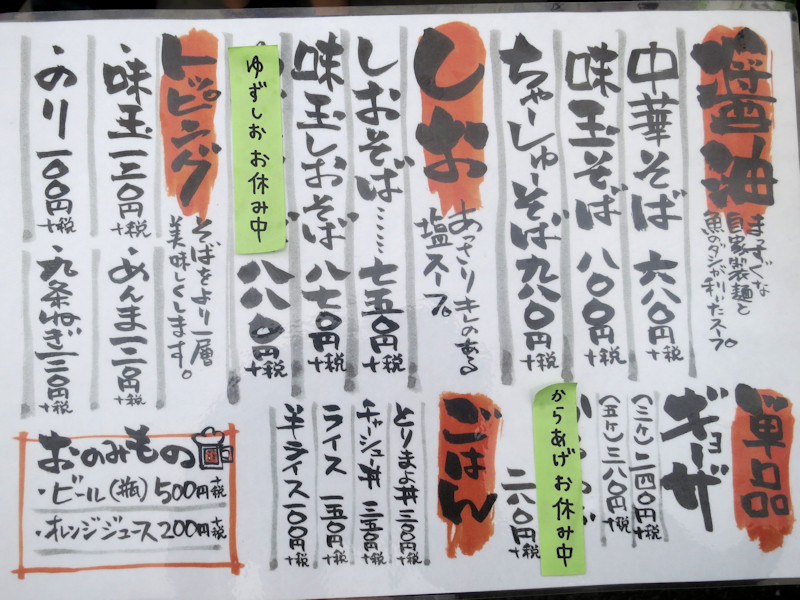 醤油
まっすぐな
自家製麺と
魚のダシが利いたスープ。
中華そば 六八〇円+税
味玉そば 八〇〇円+税
ちゃーしゅーそば 九八〇円+税
しお
あっさりキレのある
塩スープ。
しおそば……七五〇円+税
味玉しおそば 八七〇円+税
ゆずしお お休み中
八八〇円+税
トッピング
そばをより一層
美味しくします。
・味玉 一三〇円+税
・めんま 一二〇円+税
・のり 一〇〇円+税
・九条ねぎ 一三〇円+税
単品
ギョーザ
(三ヶ) 二四〇円+税
(五ヶ) 三八〇円+税
からあげ お休み中
二六〇円+税
ごはん
とりまよ丼 三〇〇円+税
チャーシュー丼 三五〇円+税
ライス 一五〇円+税
半ライス 一〇〇円+税
おのみもの
・ビール(瓶) 500円+税
・オレンジジュース 200円+税